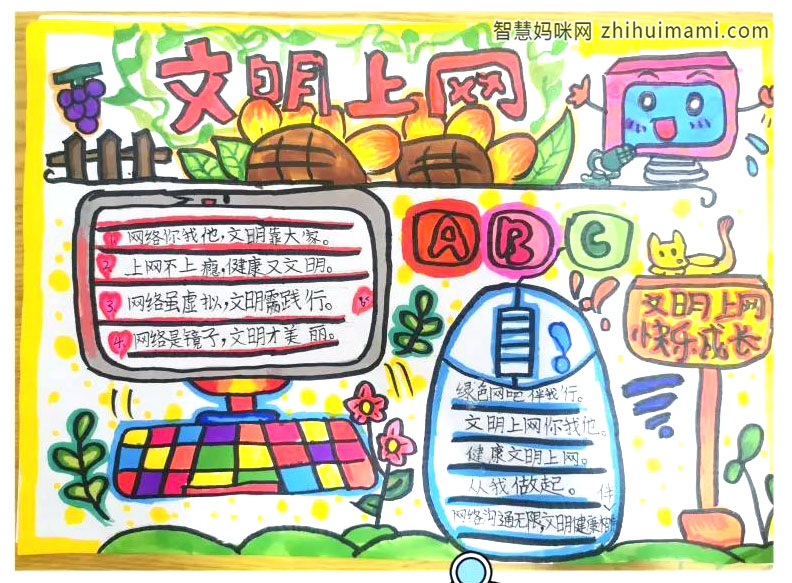 智慧妈咪网 zhihuimami.com
文明上网
1. 网络你我他，文明靠大家。
2. 上网不上瘾，健康又文明。
3. 网络虽虚拟，文明需践行。
4. 网络是镜子，文明才美丽。
A B C
绿色网吧伴我行。
文明上网你我他。
健康文明上网。
从我做起。
网络沟通无限，文明健康相伴
文明上网
快乐成长